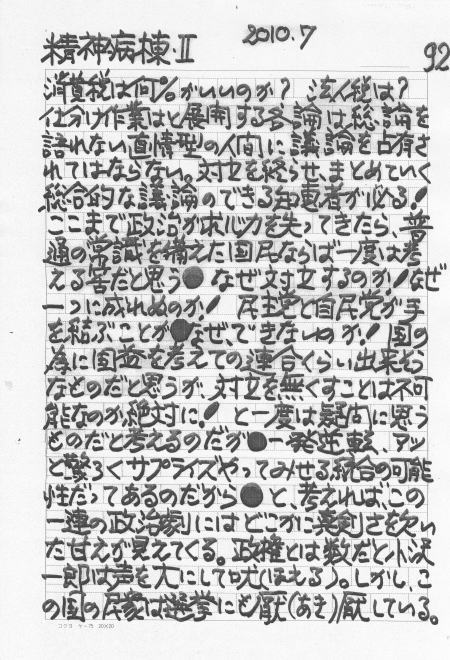 精神病棟・II
2010.7
92
消費税は何%がいいのか? 法人税は?
仕分け作業はと展開する各論は総論を
語れない直情型の人間に議論を占有さ
れてはならない。対立を終らせ、まとめていく
総合的な議論のできる知恵者が必る!
ここまで政治が求心力を失ってきたら、普
通の常識を備えた国民ならば一度は考
える筈だと思う●なぜ対立するのか!なぜ
一つに成れぬのか! 民主党と自民党が手
を結ぶことが●なぜ、できないのか!国の
為に国益を考えての連合くらい出来そう
なものだと思うが、対立を無くすことは不可
能なのか絶対に! と一度は疑問に思う
ものだと考えるのだが●一発逆転、アッ
と驚ろくサプライズやってみせる統合の可能
性だってあるのだから●と、考えれば、この
一連の政治劇にはどこかに真剣さを欠い
た甘えが見えてくる。政権とは数だと小沢
一郎は声を大にして吠(ほえ)る)。しかし、こ
の国の民衆は選挙にも厭(あき)厭している。
コクヨ ケ-75 20×20